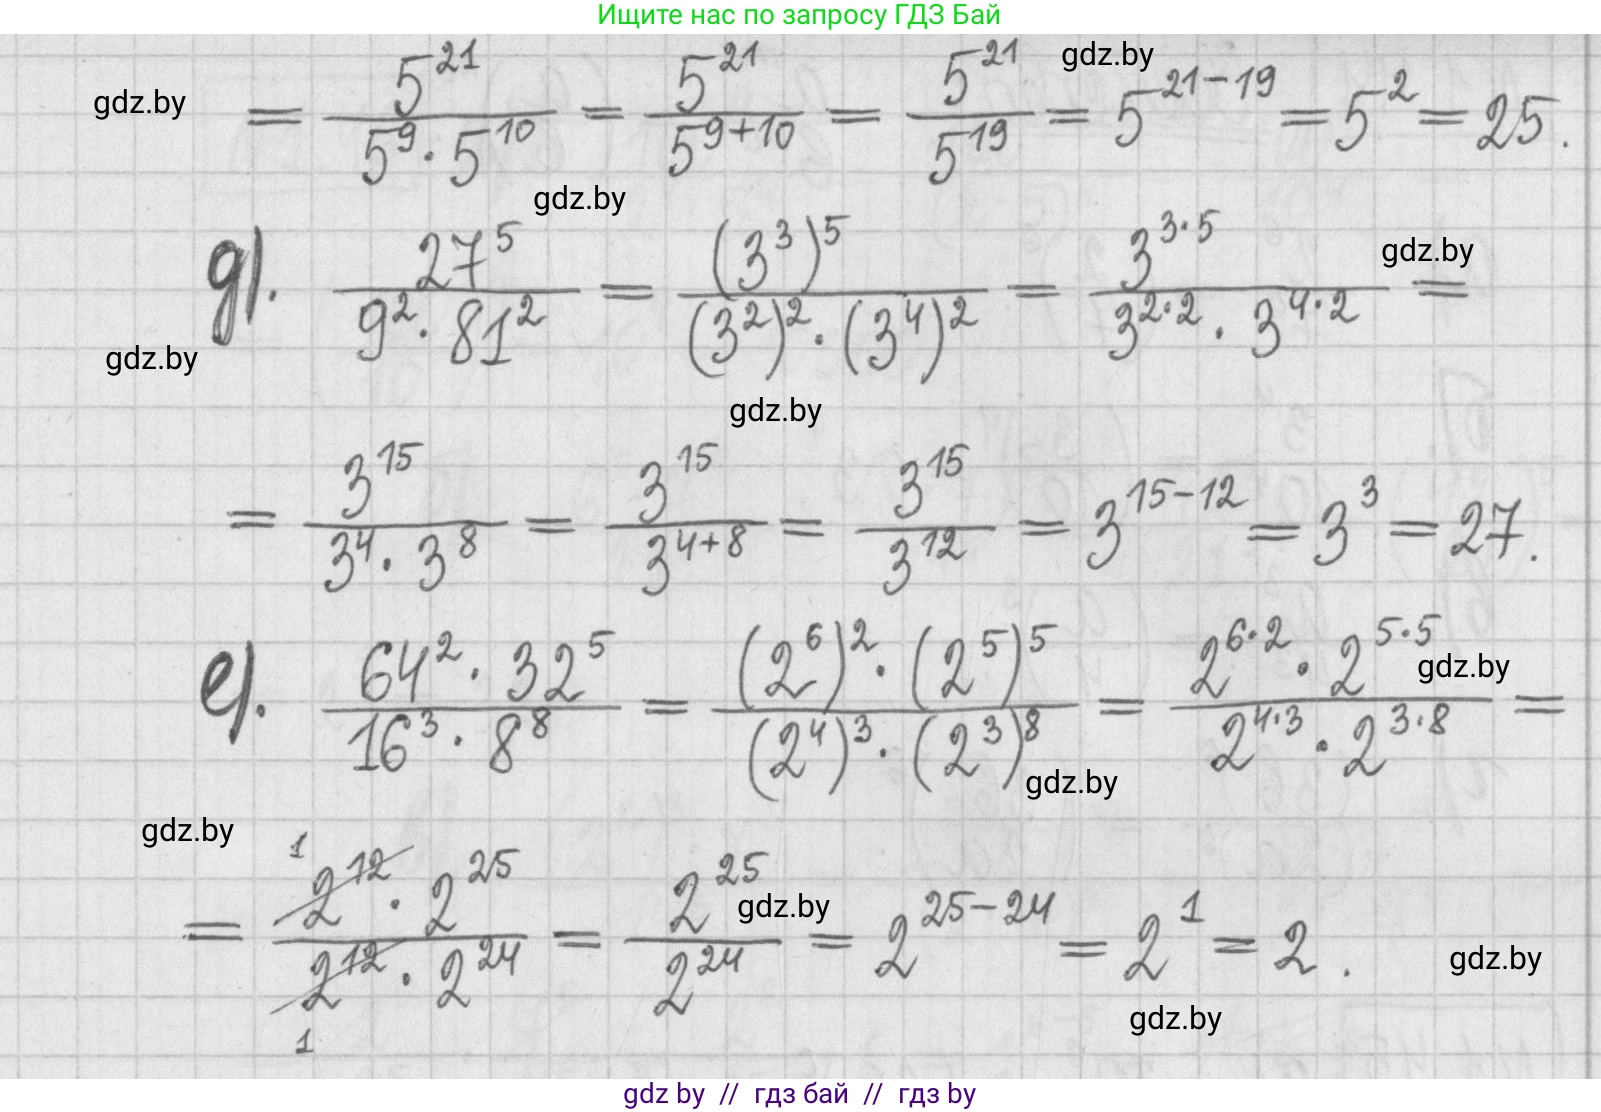 Ищите нас по запросу ГДЗ Бай
gdz.by
gdz.by
= 5^21 / (5^9 · 5^10) = 5^21 / 5^(9+10) = 5^21 / 5^19 = 5^(21-19) = 5^2 = 25.
gdz.by
gdz.by
д). 27^5 / (9^2 · 81^2) = (3^3)^5 / ((3^2)^2 · (3^4)^2) = 3^(3·5) / (3^(2·2) · 3^(4·2)) =
gdz.by
gdz.by
= 3^15 / (3^4 · 3^8) = 3^15 / 3^(4+8) = 3^15 / 3^12 = 3^(15-12) = 3^3 = 27.
е). (64^2 · 32^5) / (16^3 · 8^8) = ((2^6)^2 · (2^5)^5) / ((2^4)^3 · (2^3)^8) = (2^(6·2) · 2^(5·5)) / (2^(4·3) · 2^(3·8)) =
gdz.by
gdz.by
gdz.by
1
= (2^12 · 2^25) / (2^12 · 2^24) = 2^25 / 2^24 = 2^(25-24) = 2^1 = 2.
1
gdz.by
gdz.by
gdz.by
gdz by // гдз бай // гдз by